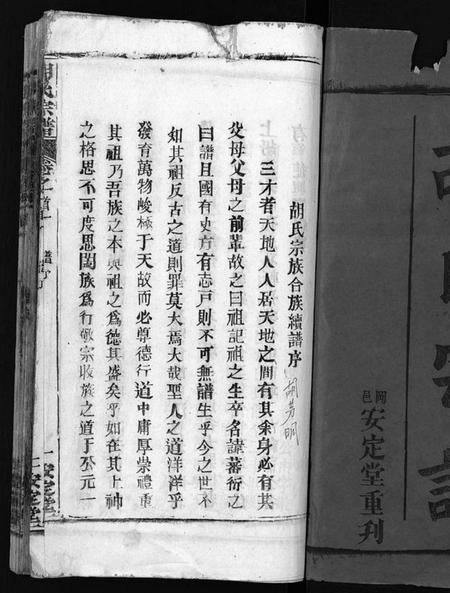 胡氏宗族合族續譜序
胡芳明
三才者天地人人居天地之間有其余身必有其
父母父母之前輩故之曰祖記祖之生卒名諱蕃衍之
曰譜且國有史方有志戸則不可無譜生乎今之世不
知其祖反古之道則罪莫大焉大哉聖人之道洋洋乎
發育萬物峻極于天故而必尊德行道中庸厚崇禮重
其祖乃吾族之本與祖之爲德其盛矣乎如在其上神
之格思不可度思閤族爲行敬宗收族之道于丕元一
胡氏宗譜
卷之首
一
安定堂
岡邑
安定堂重刋